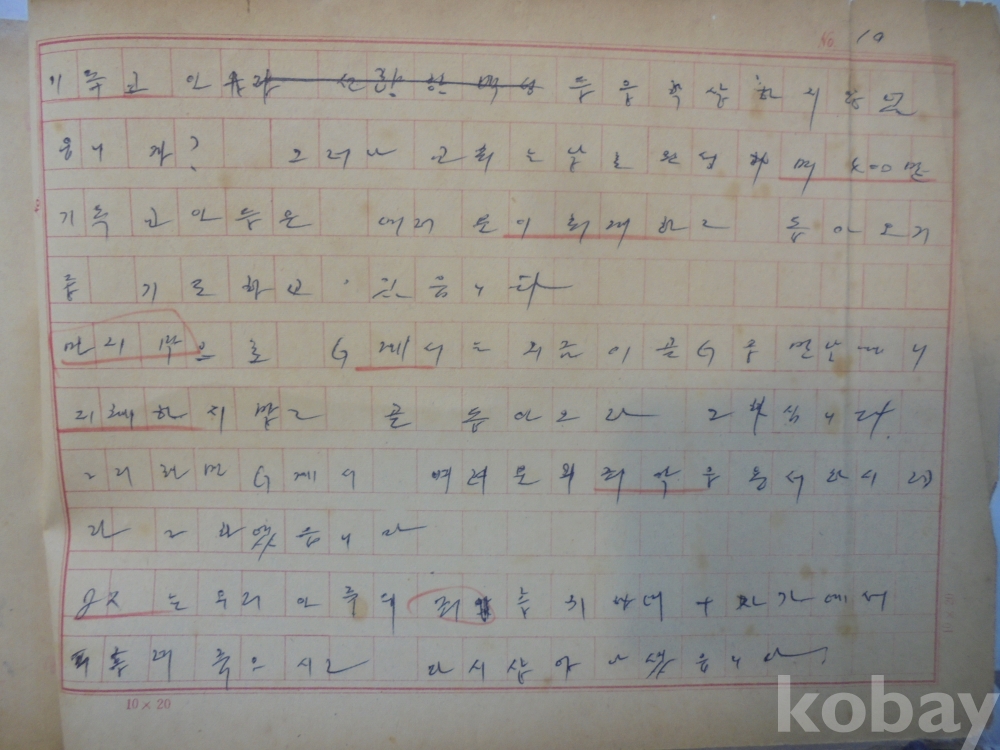 No 10
기독교 인
읍니까? 그러나 교회는 날로 왕성하며 400만
기독교인들은 여러분이 회개하고 돌아오기
를 기도하고 있읍니다
마지막으로 G께서는 지금 이 글
회개하지 말고 곧 돌아오라 그 하십니다.
그리하면 G께서 여러분의 죄악을 용서하시
라고 하였읍니다
JX는 우리 인류의 죄 를 위하여 十자가에서
피흘려 죽으시고 다시 살아 나셨읍니다.
10 × 20
kobay